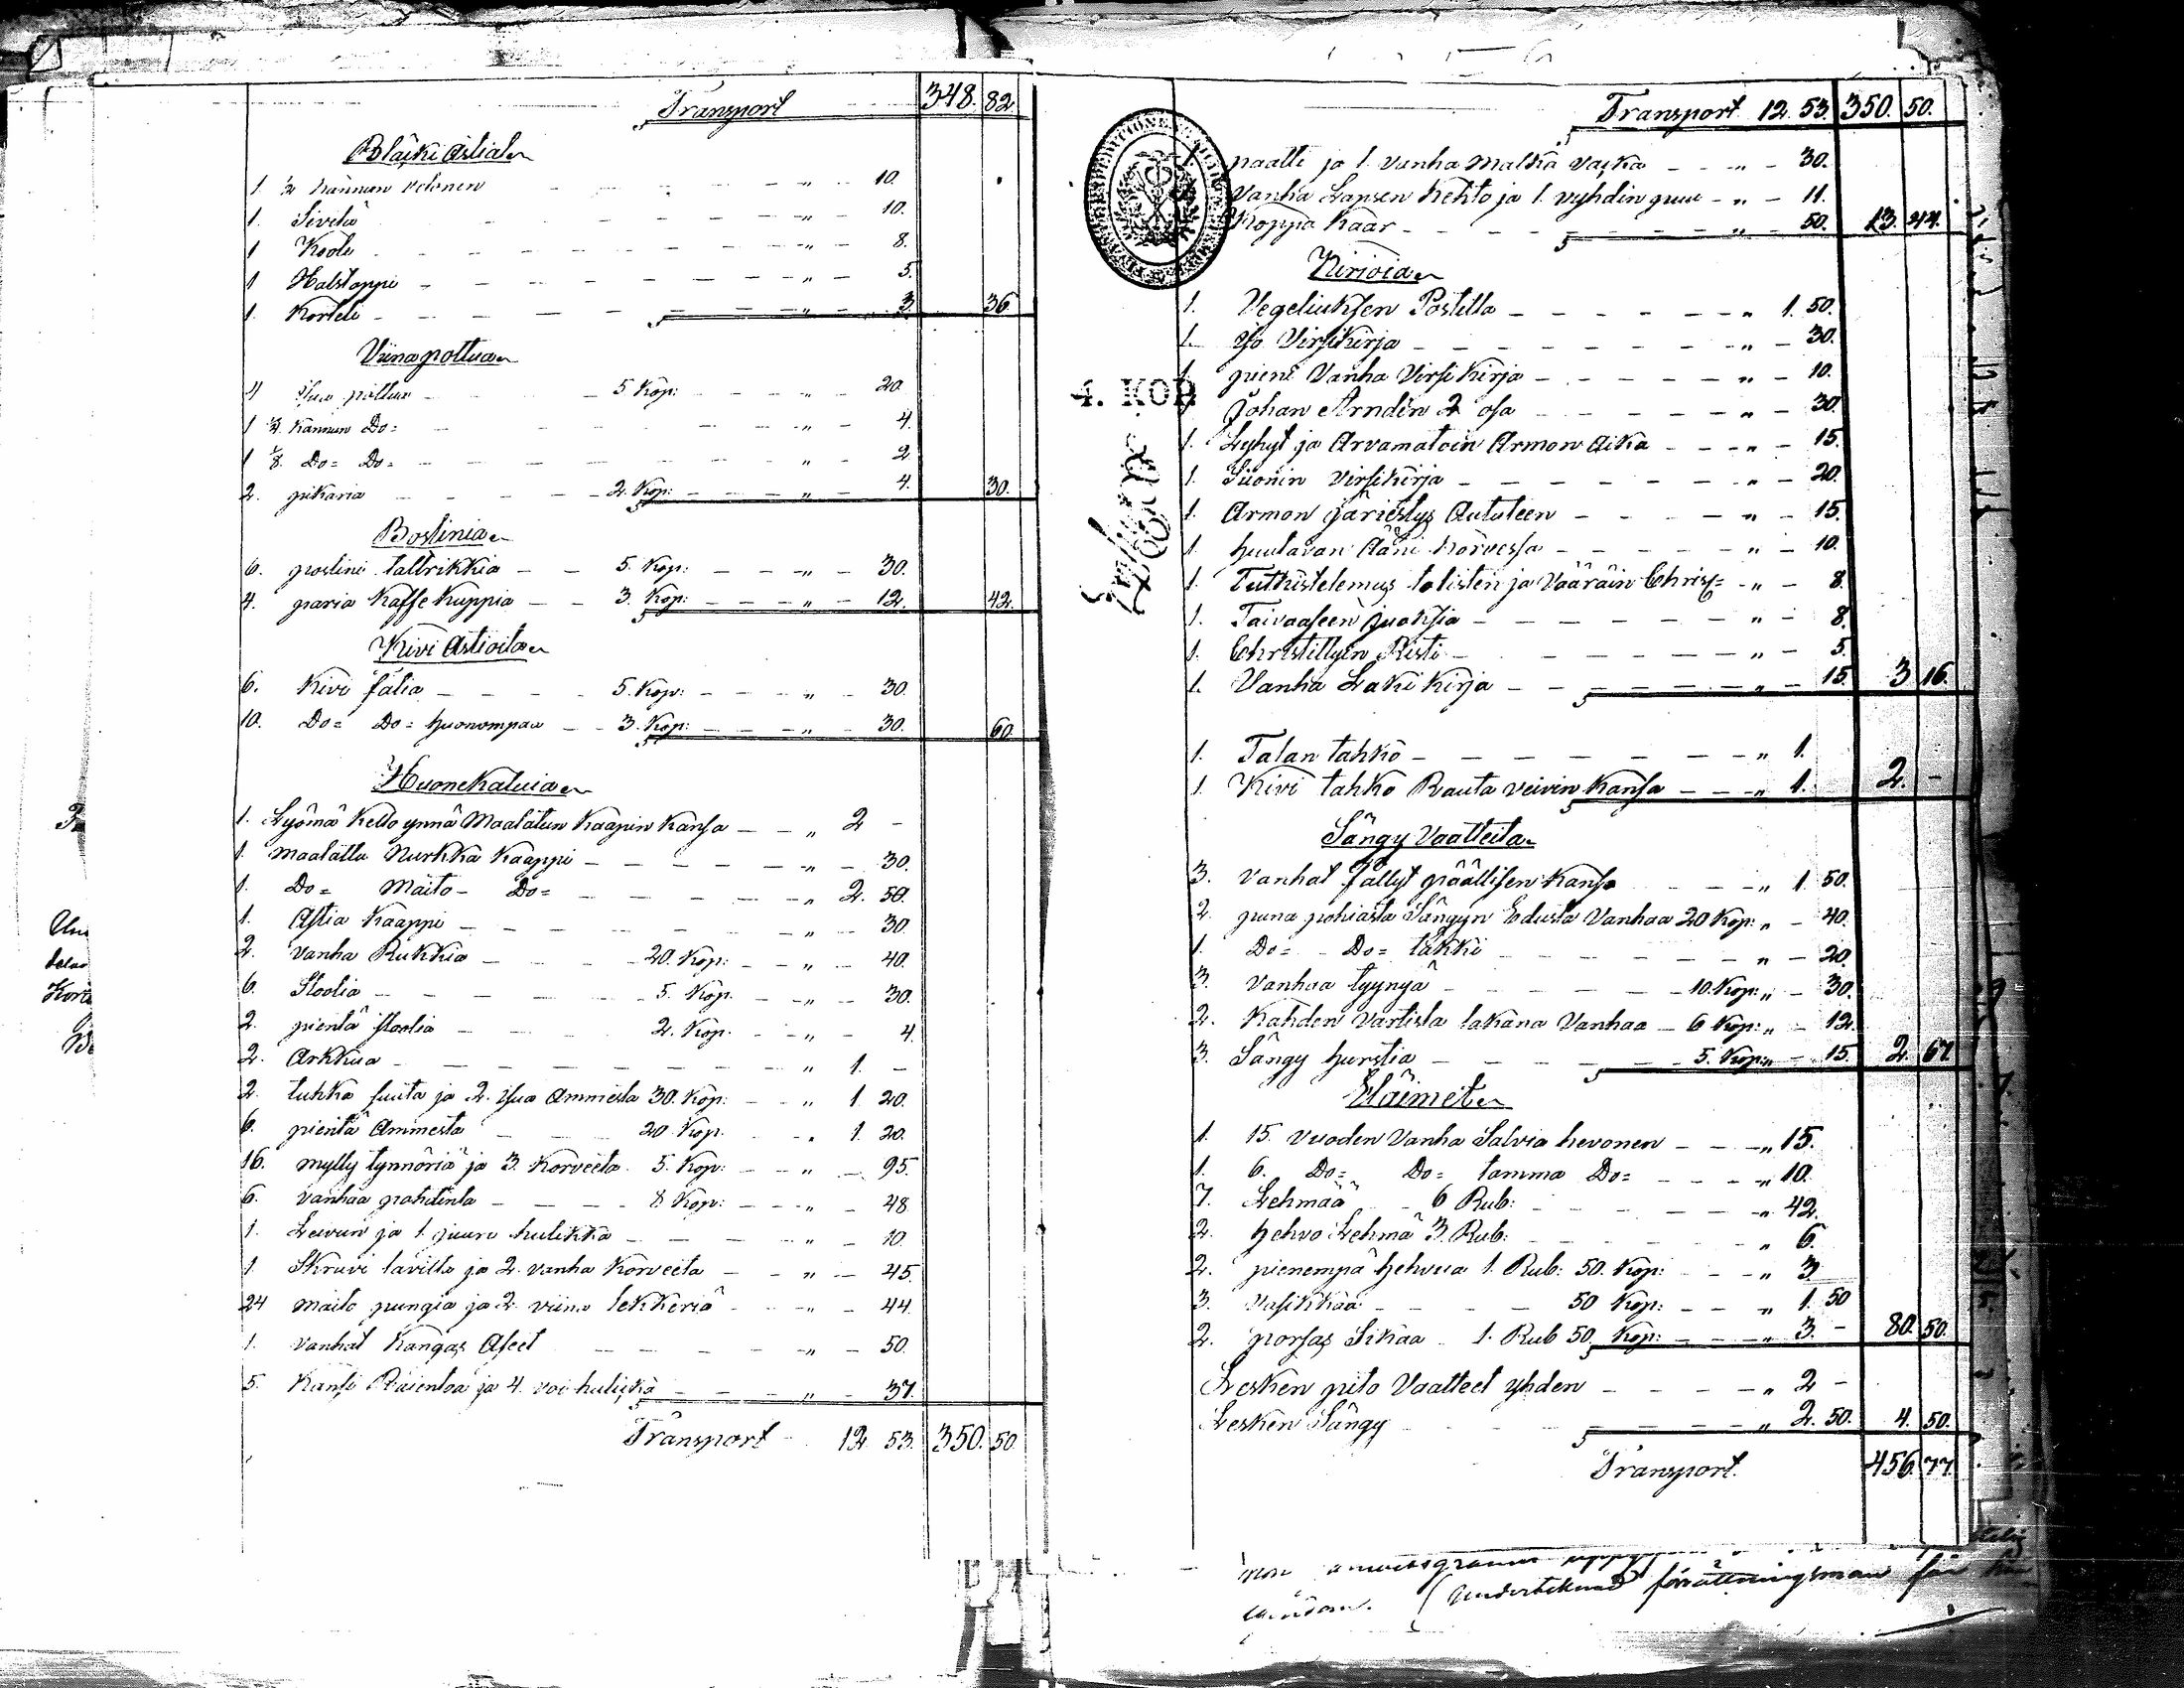 Transport 348. 82
Bläki Astiat
1. ½ kannun
1. Sivilä " 10.
1 Koolu " 8.
1 Halstoppi " 5.
1. Korteli " 3. 36
Viina pottua
4 Isua pottua 5 Kop: " 20
1 ½ Kannun Do= " 4.
1 ⅛. Do= Do= " 2
2. pikaria 2. Kop: " 4. 30.
Boslinia
6. poslini taltrikkia 5. Kop: " 30.
4. paria Kaffe Kuppia 3. Kop: " 12. 42.
Kivi Astioita
6. Kivi fatia 5. Kop: " 30.
10. Do= Do= huonompaa 3. Kop: " 30. 60.
Huonekaluia
1. Lyömä Kello ynnä Maalatun Kaapin Kansa " 2 -
1. Maalattu Nurkka Kaappi " - 30.
1. Do= Maito- Do= " 2. 50.
1. Astia Kaappi " 30.
2. vanha Rukkia 20. Kop: " 40.
6. Stoolia 5. Kop. " 30.
2. pientä stoolia 2. Kop. " 4.
2. Arkkua " 1. -
2. tuhka suuta ja 2. Isua Ammesta 30. Kop: " 1 20.
6. pientä Ammesta 20 Kop. " 1. 20.
16. mylly tynnöriä ja 3. Korveeta 5. Kop: " - 95.
6. vanhaa 8 Kop: " - 48.
1. Leivun ja 1. juuro hulikka " - 10.
1 Skruvi tavilla ja 2. vanha Korveeta " - 45.
24 maito pungia ja 2. viina lekkeriä " - 44.
1. vanhat Kangas Aseet " - 50.
5. Kansi Raientoa ja 4. voi hulikka " 37.
Transport 12 53. 350. 50.
Transport 12. 53. 350. 50.
paatti ja 1. vanha matka vaska " - 30.
Vanha Lapsen Kehto ja 1. vyhdin puu " - 11.
Koppa Kaar " 50. 13. 44.
Kirioia
1. Vegeliuksen Postilla " 1. 50.
1. Iso Virsikirja " - 30.
1. pieni Vanha Virsi Kirja " - 10.
4. KOP
1. Johan Arndin 2 osa " - 30.
1. Lyhyt ja Arvamatoin Armon Aika " - 15.
1. Siionin Virsikirja " - 20.
1. Armon järiestys Aututeen " - 15.
1. huutavan Ääni korvessa " - 10.
1. Tutkistelemus totisten ja Vääräin Christ= " - 8.
1. Taivaaseen juoksia " - 8.
1. Christillyin Risti " - 5.
1. Vanha Laki Kirja " - 15. 3 16.
1. Talan tahko " 1.
1. Kivi tahko Rauta veivin Kansa " 1. 2. -
Sängy Vaatteita
3. vanhat fällyt päällisen Kansa " 1. 50.
2. puna pohiasta Sängyn Edusta Vanhaa 20 Kop: " - 40.
1. Do= Do= täkki " - 20.
3. vanhaa tyynyä 10. Kop: " - 30.
2. Kahden vartista lakana Vanhaa 6 Kop: " - 12.
3. Sängy hurstia 5. Kop: " - 15. 2. 67.
Eläimet
1. 15. vuoden Vanha Salvia hevonen " 15.
1. 6. Do= Do= tamma Do= " 10.
7. Lehmää 6 Rub: " 42.
2. hehvo Lehmä 3. Rub: " 6.
2. pienempä hehvua 1. Rub: 50. Kop: " 3
3. Vasikkaa 50 Kop: " 1. 50
2. porsas Sikaa 1. Rub 50. Kop: " 3. - 80. 50.
Lesken pito Vaatteet yhden " 2 -
Lesken Sängy " 2. 50. 4. 50.
Transport. 456. 77.
undertecknad förrättningsman får